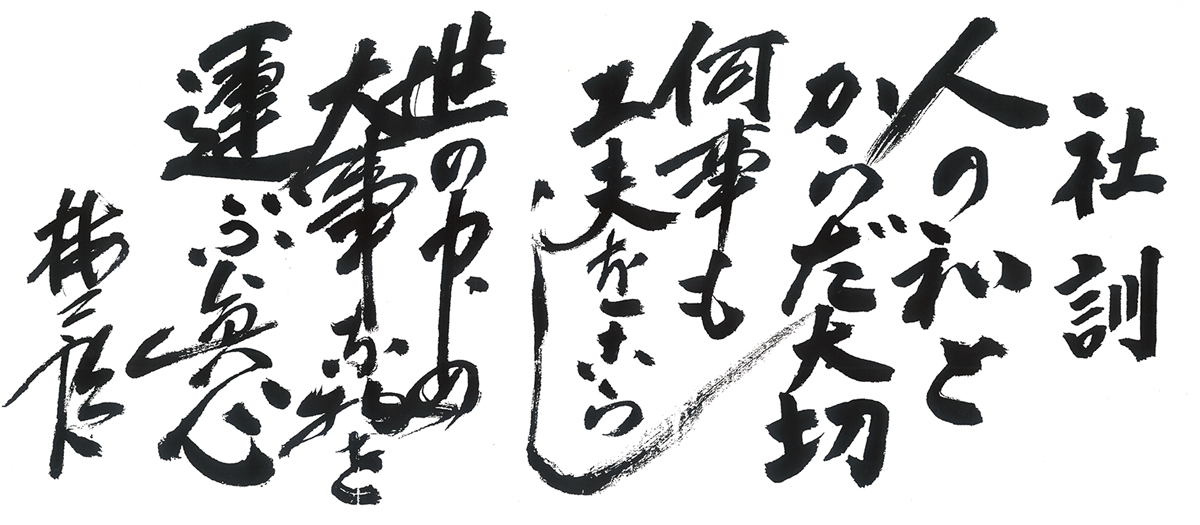 社訓
人の和と
からだ大切
何事も
工夫をこらし
世の中の
大事な物を
運ぶ真心